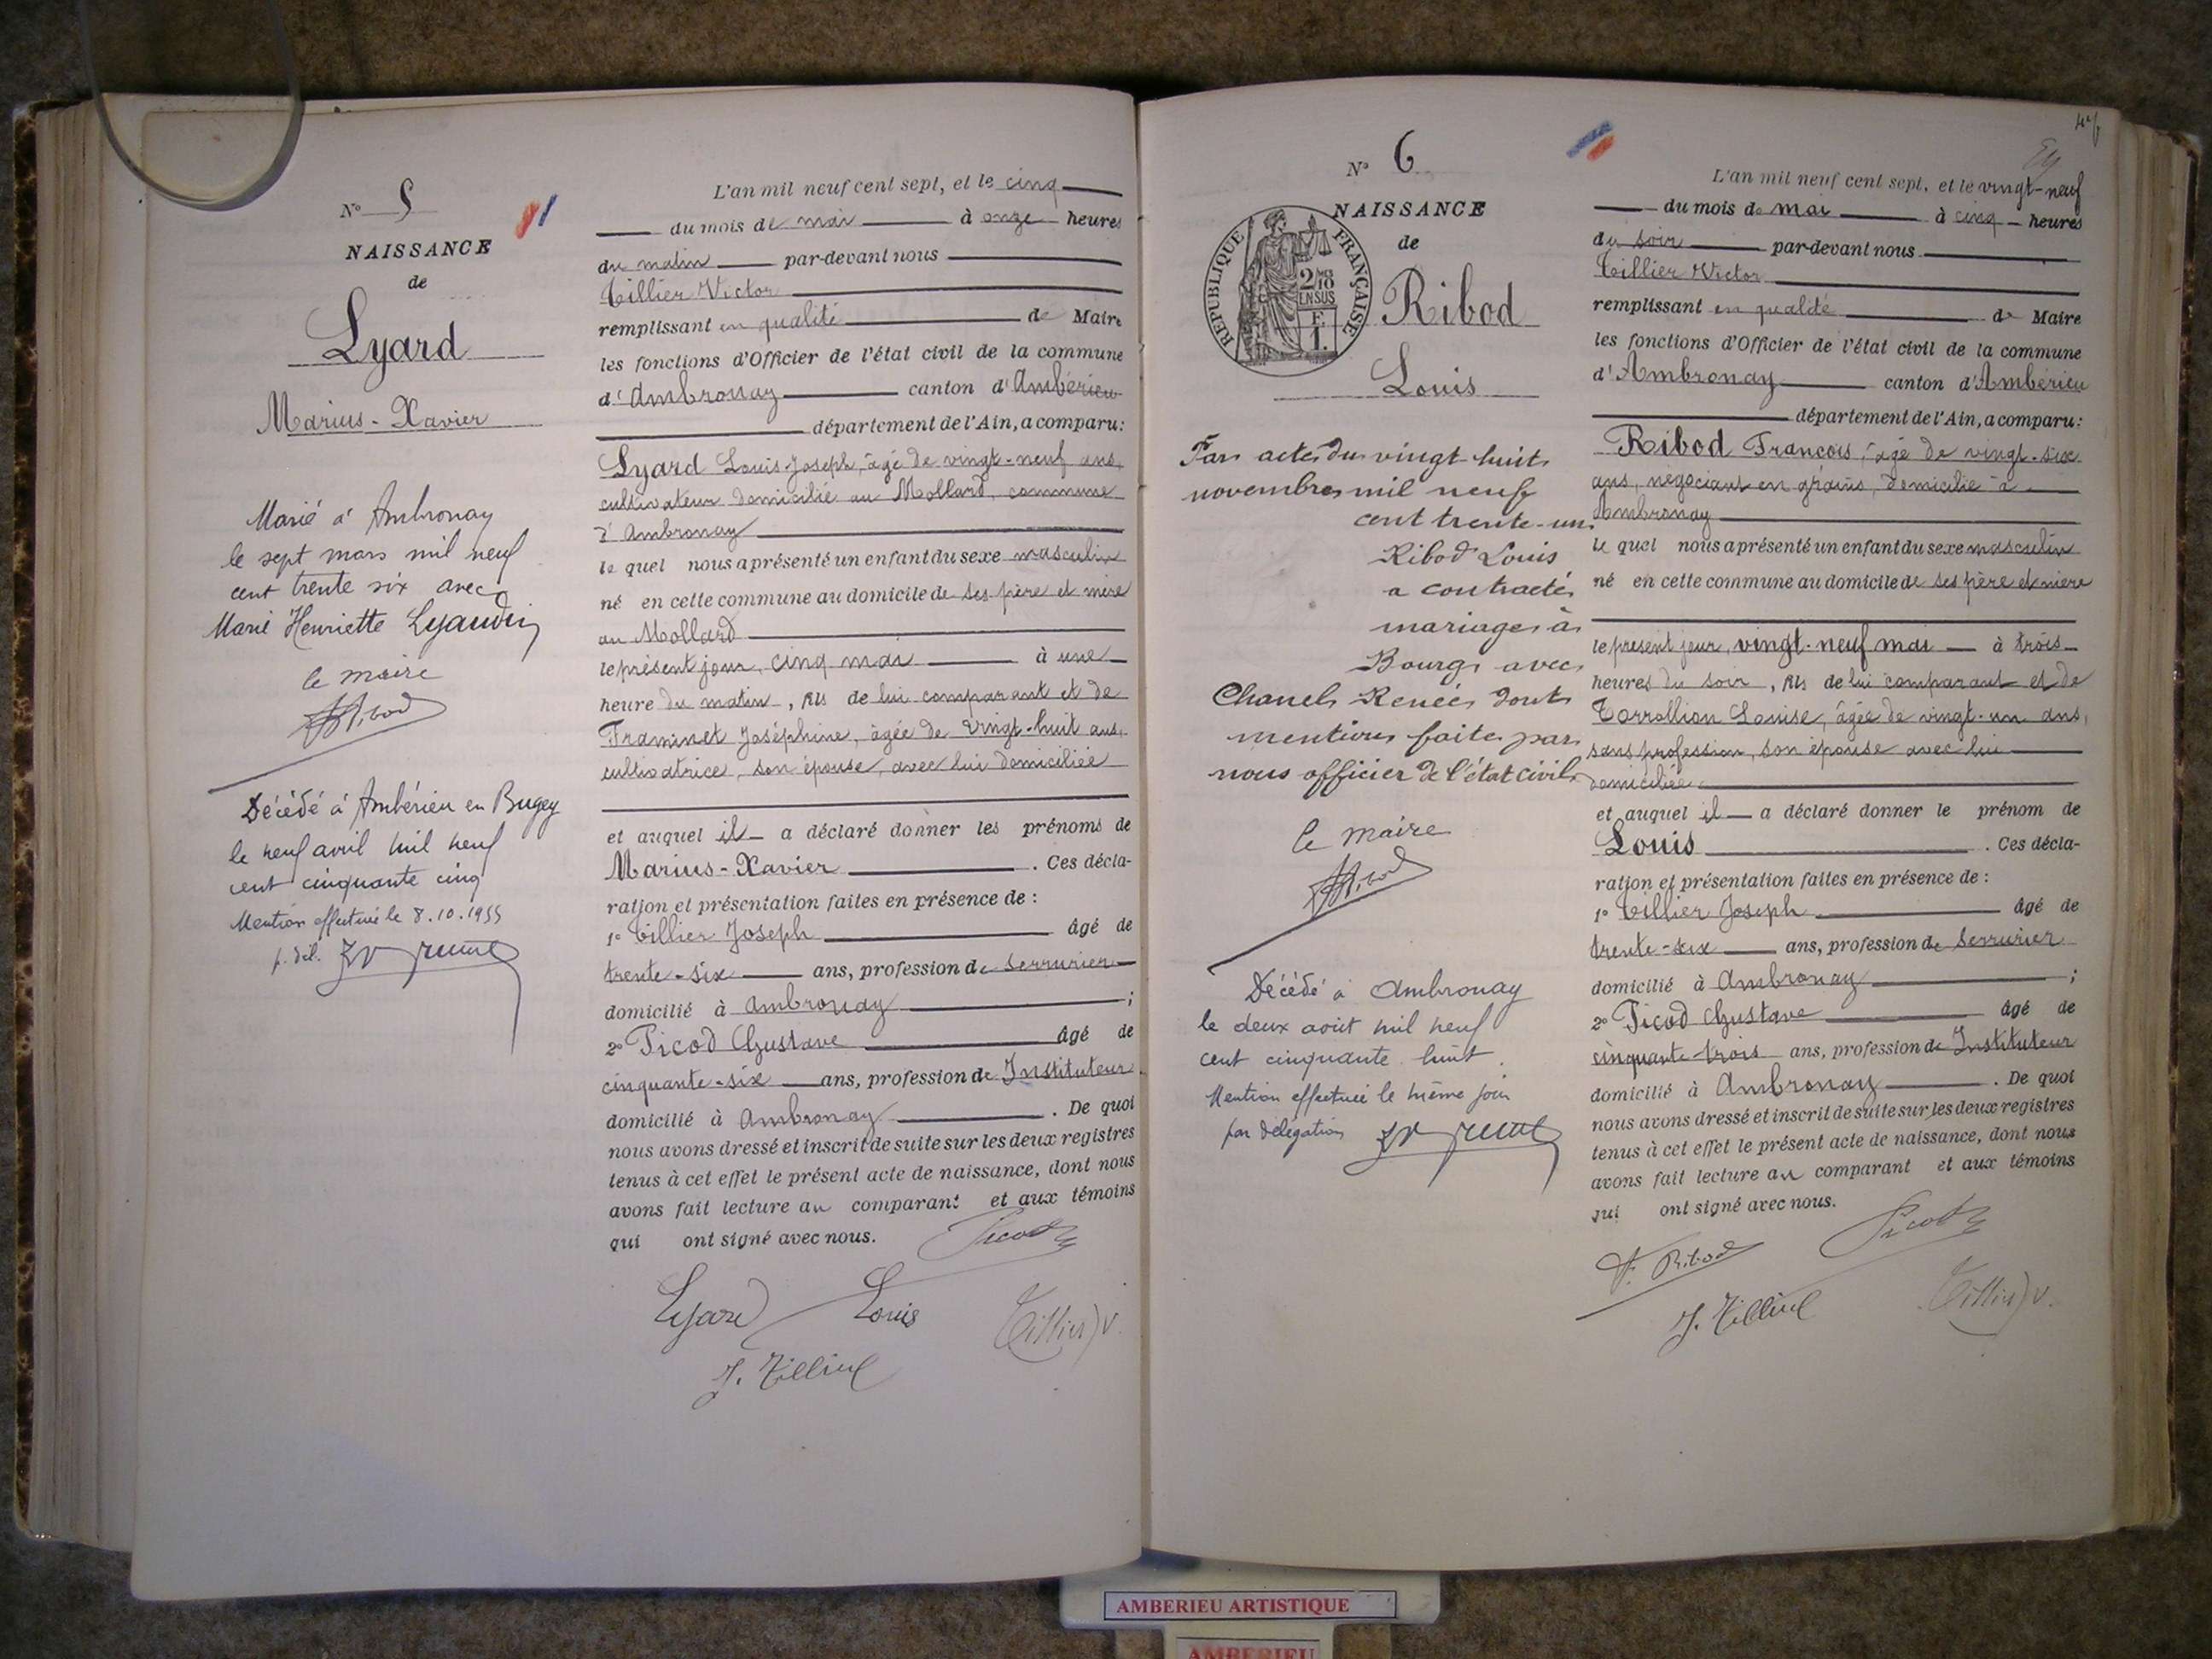 N° 5
NAISSANCE
de
Lyard
Marius-Xavier
Marié à Ambronay
le sept mars mil neuf
cent trente six avec
Marie Henriette Lyaudin
le maire
Décédé à Ambérieu en Bugey
le neuf avril mil neuf
cent cinquante cinq
Mention effectuée le 8.10.1955
p. dél.
L'an mil neuf cent sept, et le cinq
du mois de mai à onze heures
du matin par-devant nous
Tillier Victor
remplissant en qualité de Maire
les fonctions d'Officier de l'état civil de la commune
d'Ambronay canton d'Ambérieu
département de l'Ain, a comparu:
Lyard Louis-Joseph, âgé de vingt-neuf ans,
cultivateur domicilié au Mollard, commune
d'Ambronay
le quel nous a présenté un enfant du sexe masculin
né en cette commune au domicile de ses père et mère
au Mollard
le présent jour, cinq mai à une
heure du matin, fils de lui comparant et de
Framinet Joséphine, âgée de vingt-huit ans,
cultivatrice, son épouse, avec lui domiciliée
et auquel il a déclaré donner les prénoms de
Marius-Xavier. Ces décla-
ration et présentation faites en présence de :
1° Tillier Joseph âgé de
trente-six ans, profession de serrurier
domicilié à Ambronay ;
2° Picod Gustave âgé de
cinquante-six ans, profession de Instituteur
domicilié à Ambronay. De quoi
nous avons dressé et inscrit de suite sur les deux registres
tenus à cet effet le présent acte de naissance, dont nous
avons fait lecture au comparant et aux témoins
qui ont signé avec nous.
Picod
Lyard Louis
Tillier V.
J. Tillier
N° 6
NAISSANCE
de
RÉPUBLIQUE FRANÇAISE
2/10
EN SUS
F.
1.
Ribod
Louis
Par acte du vingt huit
novembre mil neuf
cent trente-un
Ribod Louis
a contracté
mariage à
Bourg avec
Chanel Renée dont
mention faite par
nous officier de l'état civil
le maire
Décédé à Ambronay
le deux août mil neuf
cent cinquante huit.
Mention effectuée le même jour
par délégation
L'an mil neuf cent sept, et le vingt-neuf
du mois de mai à cinq heures
du soir par-devant nous
Tillier Victor
remplissant en qualité de Maire
les fonctions d'Officier de l'état civil de la commune
d'Ambronay canton d'Ambérieu
département de l'Ain, a comparu:
Ribod François, âgé de vingt-six
ans, négociant en grains, domicilié à
Ambronay
le quel nous a présenté un enfant du sexe masculin
né en cette commune au domicile de ses père et mère
le présent jour, vingt-neuf mai à trois
heures du soir, fils de lui comparant et de
Torrollion Louise, âgée de vingt-un ans,
sans profession, son épouse avec lui
domiciliée
et auquel il a déclaré donner le prénom de
Louis. Ces décla-
ration et présentation faites en présence de :
1° Tillier Joseph âgé de
trente-six ans, profession de serrurier
domicilié à Ambronay ;
2° Picod Gustave âgé de
cinquante-trois ans, profession de Instituteur
domicilié à Ambronay. De quoi
nous avons dressé et inscrit de suite sur les deux registres
tenus à cet effet le présent acte de naissance, dont nous
avons fait lecture au comparant et aux témoins
qui ont signé avec nous.
Picod
F. Ribod
Tillier V.
J. Tillier
AMBERIEU ARTISTIQUE
AMBERIEU